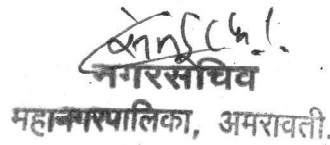 नगरसचिव
महानगरपालिका, अमरावती.